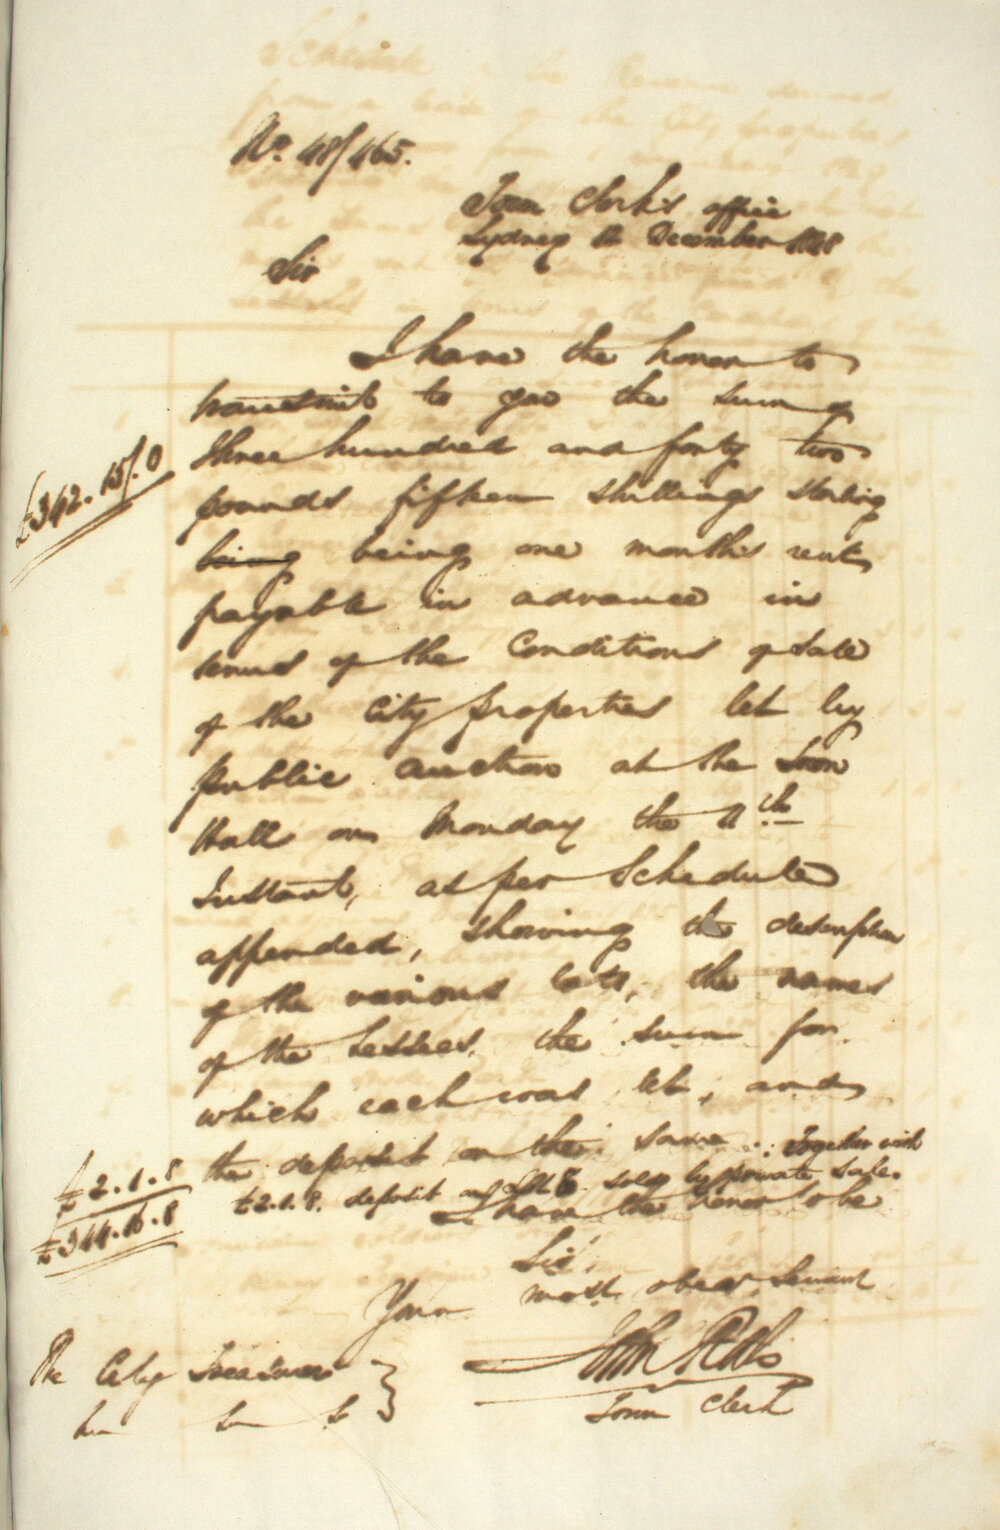 No. 48/465.
Town Clerk's office
Sydney 12 December 1848
Sir
I have the honor to
transmit to you the sum of
£342.15/.0
three hundred and forty two
pounds fifteen shillings sterling
being being one month's rent
payable in advance in
terms of the Conditions of Sale
of the City properties let by
public auction at the Town
Hall on Monday the 11th
Instant, as per Schedule
appended, showing the description
of the various lots, the names
of the Lessees, the sum for
which each was let, and
the deposit on the same. Together with
£2.1.8
£2.1.8. deposit on Lot 5. sold by private sale.
£344.16.8
I have the honor to be
Sir,
Your most obedt. Servant
John
Town Clerk
The City Treasurer